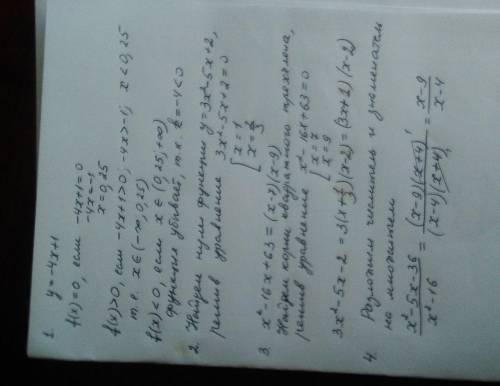 1. y=-4x+1
f(x)=0, если -4x+1=0
-4x=-1
x=0,25
f(x)>0, если -4x+1>0; -4x>-1; x<0,25
т.е. x∈(-∞; 0,25)
f(x)<0, если x∈(0,25; +∞)
функция убывает, т.к. k=-4<0
2. Найдем нули функции y=3x²-5x+2,
решив уравнение 3x²-5x+2=0
[x=1
[x=2/3
3. x²-16x+63=(x-7)(x-9)
Найдем корни квадратного трехчлена,
решив уравнение x²-16x+63=0
[x=7
[x=9
3x²-5x-2=3(x+1/3)(x-2)=(3x+1)(x-2)
4. Разложим числитель и знаменатель
на множители
x²-5x-36/x²-16=(x-9)(x+4)/(x-4)(x+4)=x-9/x-4